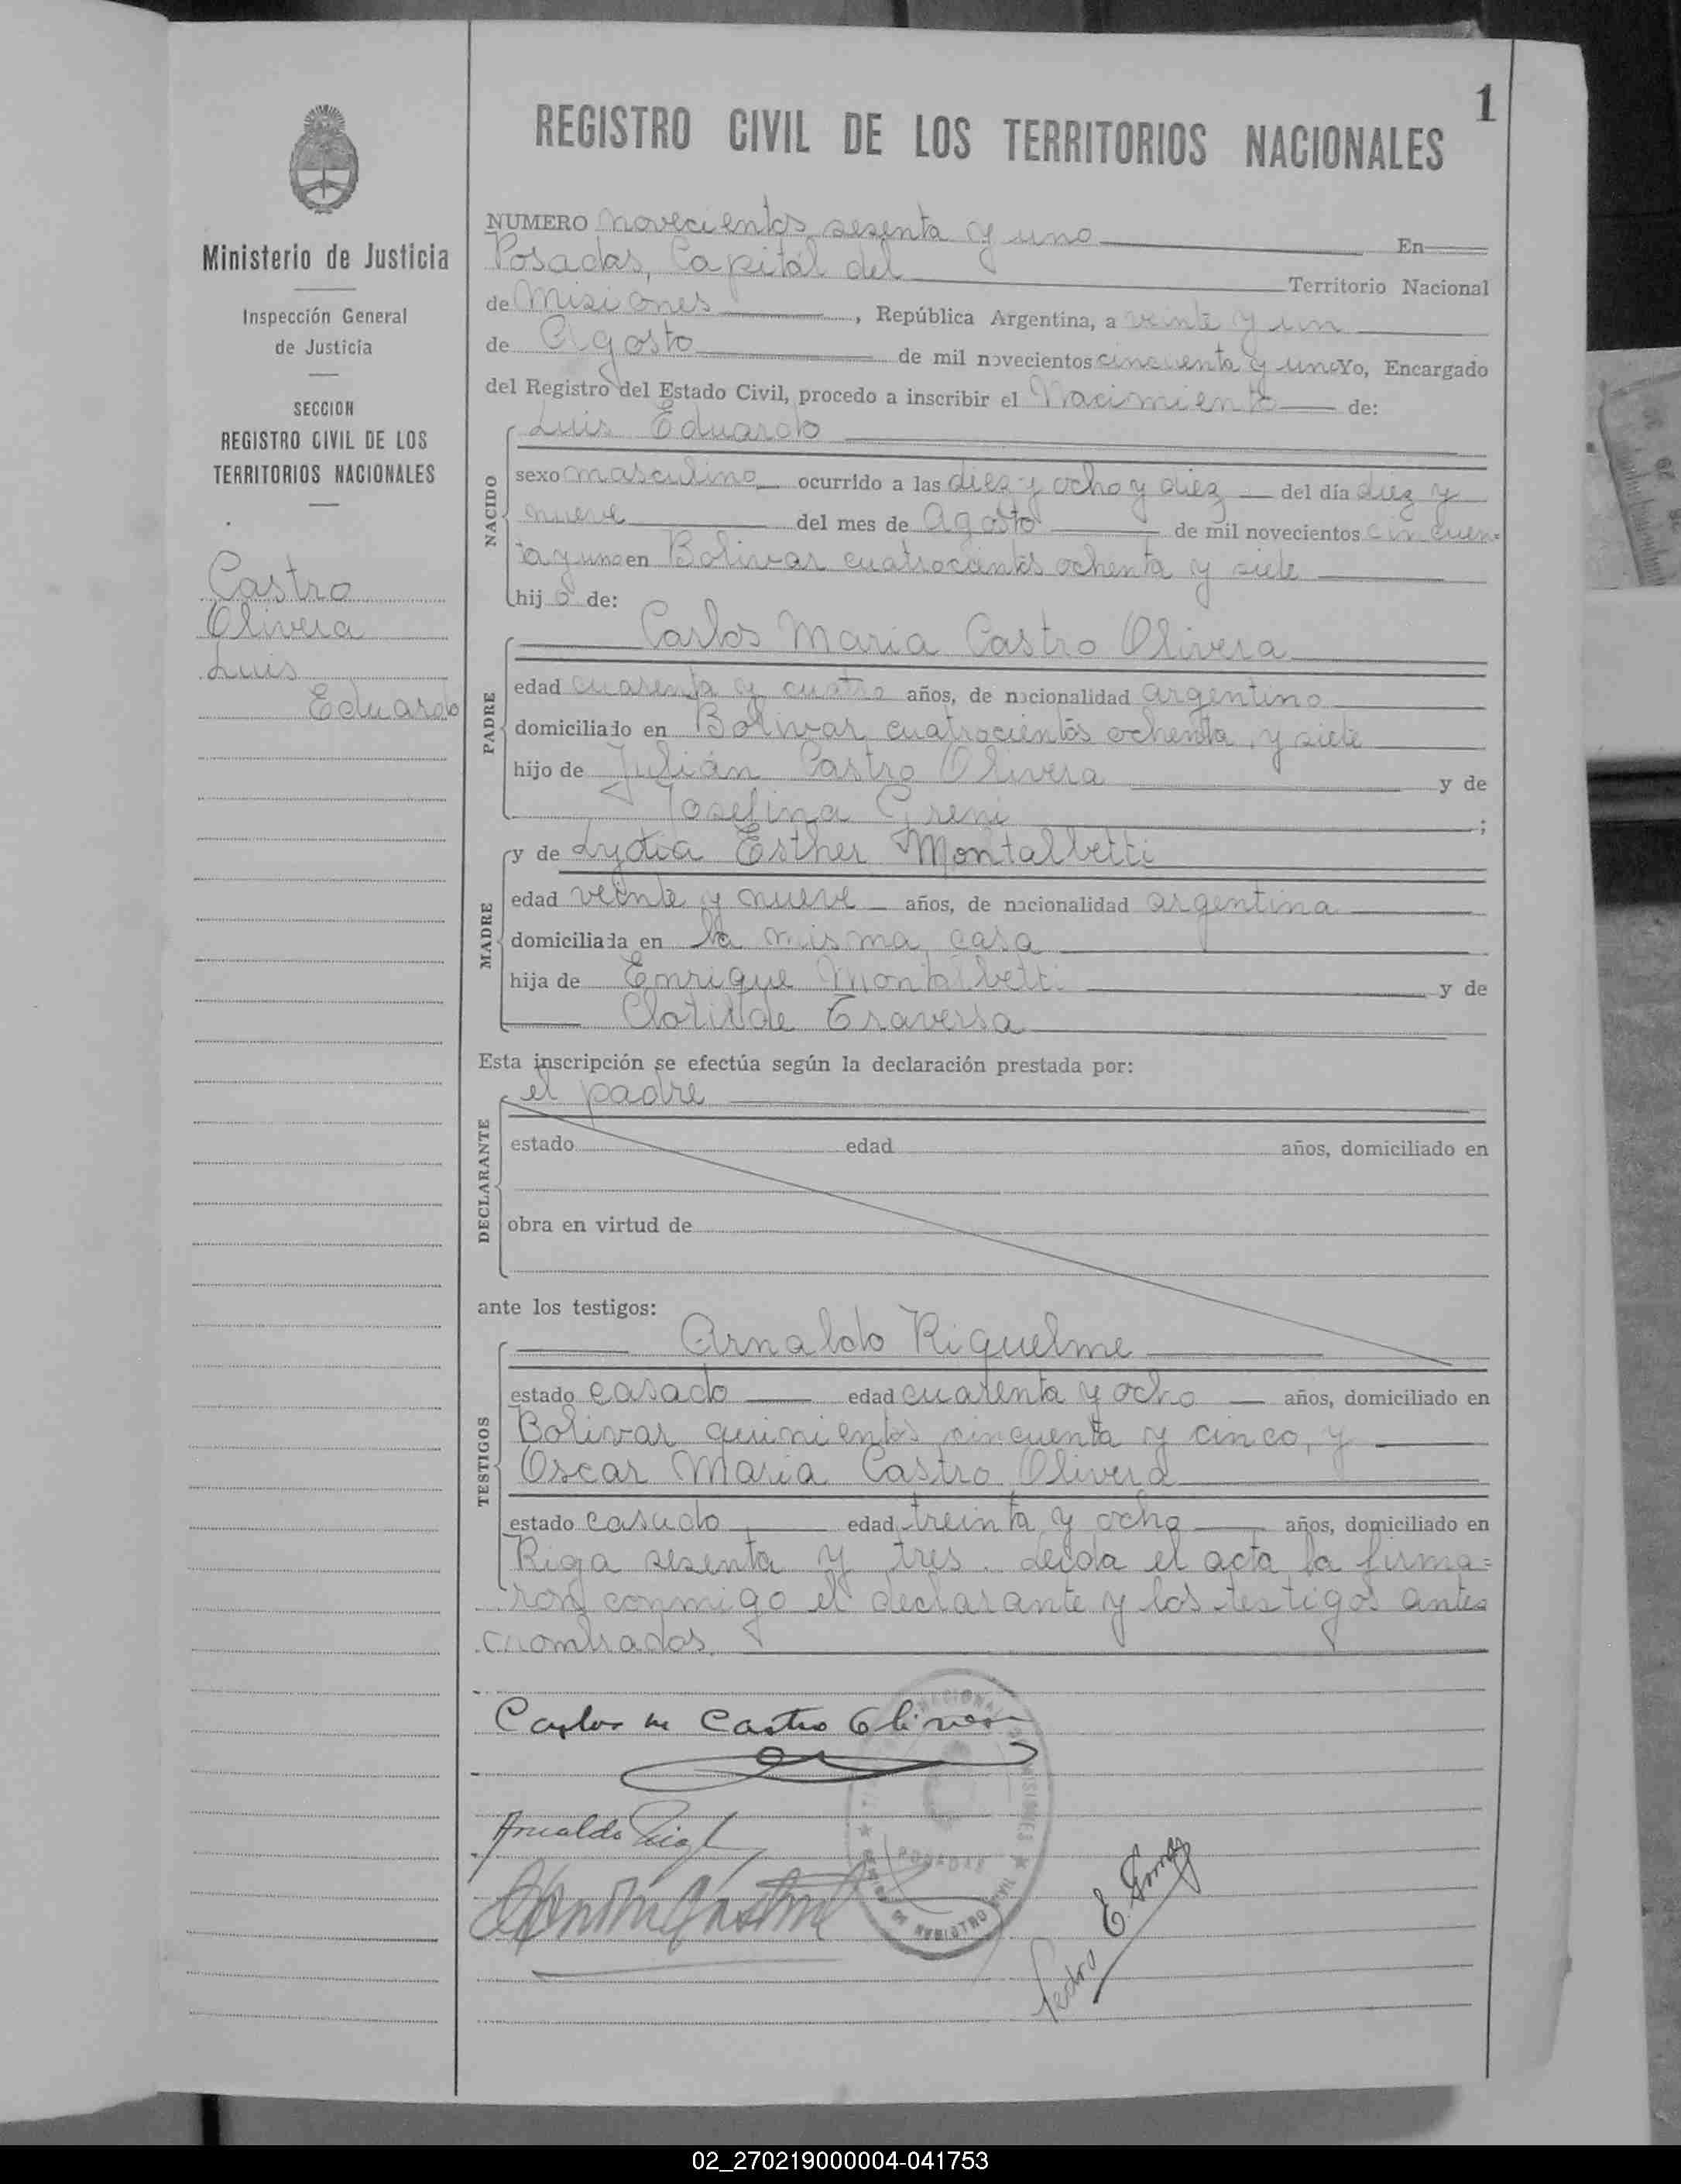 1
REGISTRO CIVIL DE LOS TERRITORIOS NACIONALES
Ministerio de Justicia
Inspección General
de Justicia
SECCION
REGISTRO CIVIL DE LOS
TERRITORIOS NACIONALES
Castro
Olivera
Luis
Eduardo
NUMERO novecientos sesenta y uno En
Posadas, Capital del Territorio Nacional
de Misiones, República Argentina, a veinte y un
de Agosto de mil novecientos cincuenta y uno Yo, Encargado
del Registro del Estado Civil, procedo a inscribir el Nacimiento de:
NACIDO
Luis Eduardo
sexo masculino ocurrido a las diez y ocho y diez del día diez y
nueve del mes de Agosto de mil novecientos cincuen=
ta y uno en Bolivar cuatrocientos ochenta y siete
hijo de:
PADRE
Carlos Maria Castro Olivera
edad cuarenta y cuatro años, de nacionalidad argentino
domiciliado en Bolivar cuatrocientos ochenta y siete
hijo de Julián Castro Olivera y de
Josefina Greni;
MADRE
y de Lydia Esther Montalbetti
edad veinte y nueve años, de nacionalidad argentina
domiciliada en la misma casa
hija de Enrique Montalbetti y de
Clotilde Traversa
Esta inscripción se efectúa según la declaración prestada por:
DECLARANTE
el padre
estado edad años, domiciliado en
obra en virtud de
ante los testigos:
TESTIGOS
Arnaldo Riquelme
estado casado edad cuarenta y ocho años, domiciliado en
Bolivar quinientos cincuenta y cinco, y
Oscar Maria Castro Olivera
estado casado edad treinta y ocho años, domiciliado en
Rioja sesenta y tres. Leida el acta la firma=
ron conmigo el declarante y los testigos ante=
nombrados.
Carlos M Castro Olivera
Arnaldo
POSADAS
REGISTRO CIVIL
MISIONES
Pedro E.
02_270219000004-041753